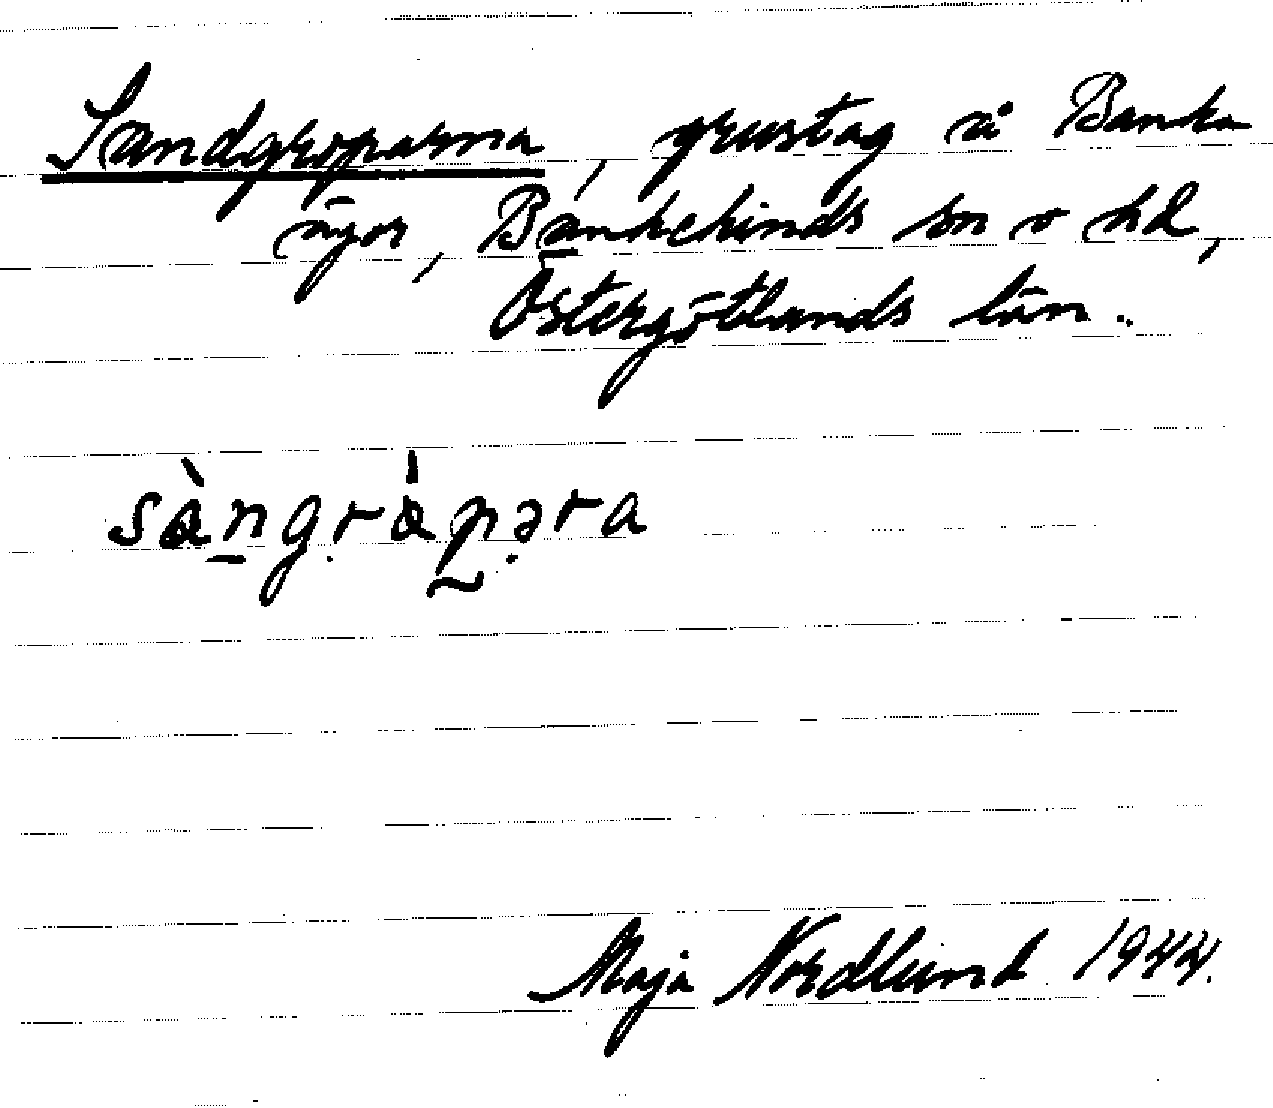 Sandgroparna, grustag å Banka
ängor, Bankekinds sn o hd,
Östergötlands län.
sàn̠gṛàpə̣ra
Maja Nordlund 1944.